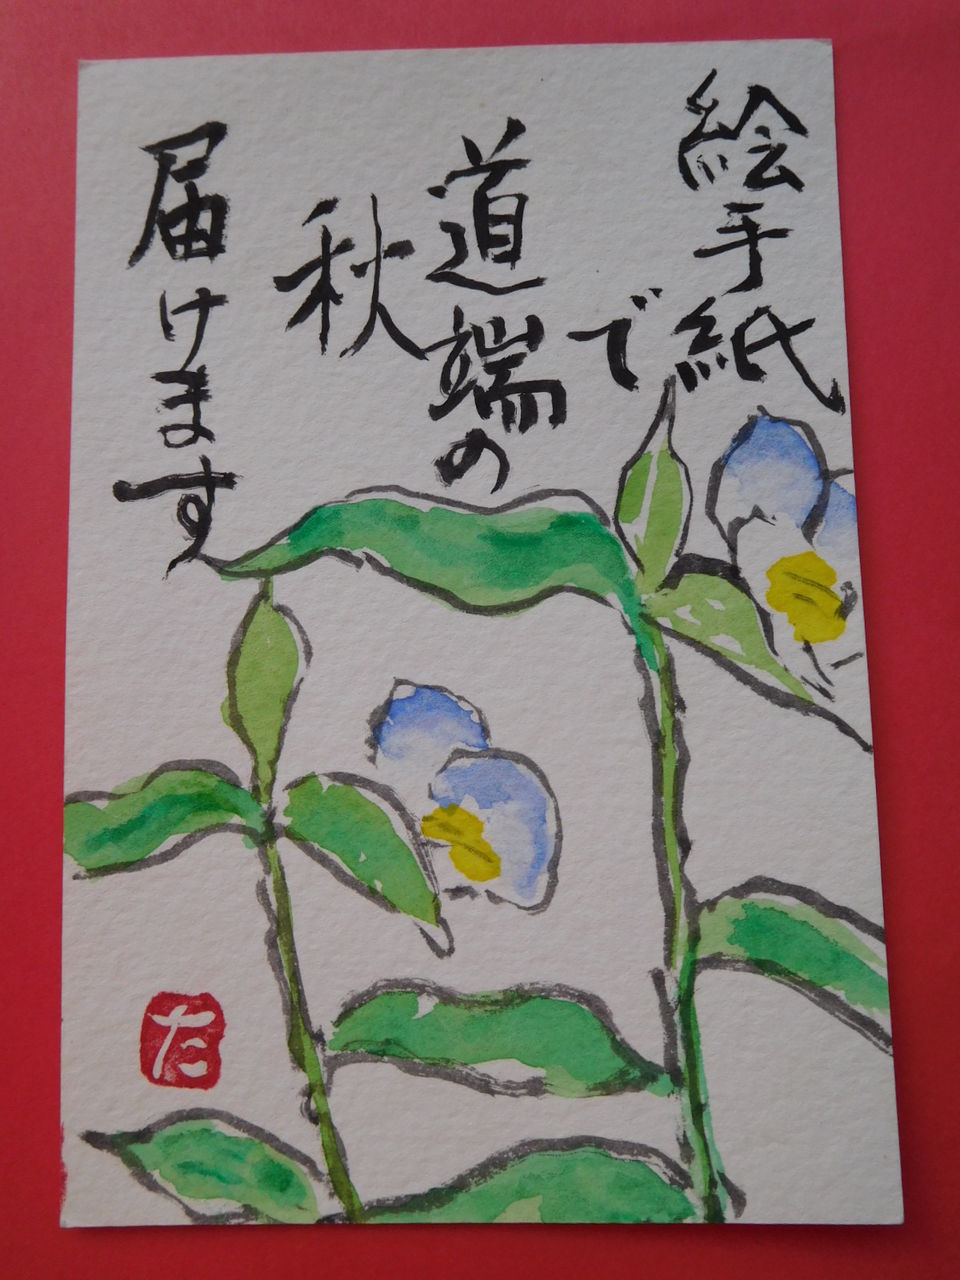 絵手紙
で
道端の
秋
届けます
た